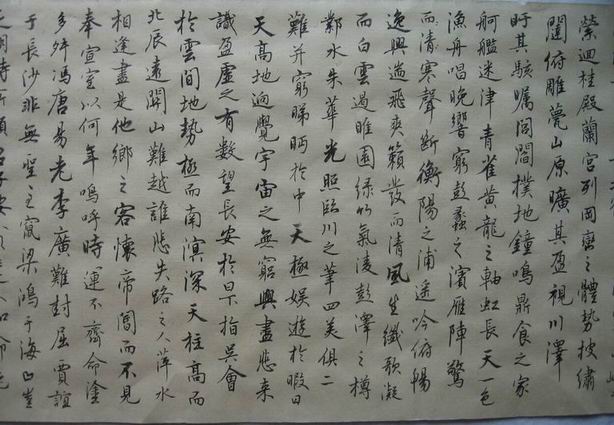 縈迴桂殿蘭宮列岡巒之體勢披繡
闥俯雕甍山原曠其盈視川澤
盱其駭矚閭閻撲地鐘鳴鼎食之家
舸艦迷津青雀黄龍之軸虹長天一色
漁舟唱晚響窮彭蠡之濱雁陣驚
而清寒聲斷衡陽之浦遥吟俯暢
逸興遄飛爽籟發而清風生纖歌凝
而白雲過睢園緑竹氣凌彭澤之樽
鄴水朱華光照臨川之筆四美俱二
難并窮睇眄於中天極娛遊於暇日
天高地迥覺宇宙之無窮興盡悲来
識盈虚之有數望長安於日下指吳會
於雲間地勢極而南溟深天柱高而
北辰遠關山難越誰悲失路之人萍水
相逢盡是他鄉之客懷帝閽而不見
奉宣室以何年嗚呼時運不齊命塗
多舛馮唐易老李廣難封屈賈誼
于長沙非無聖主竄梁鴻于海曲豈